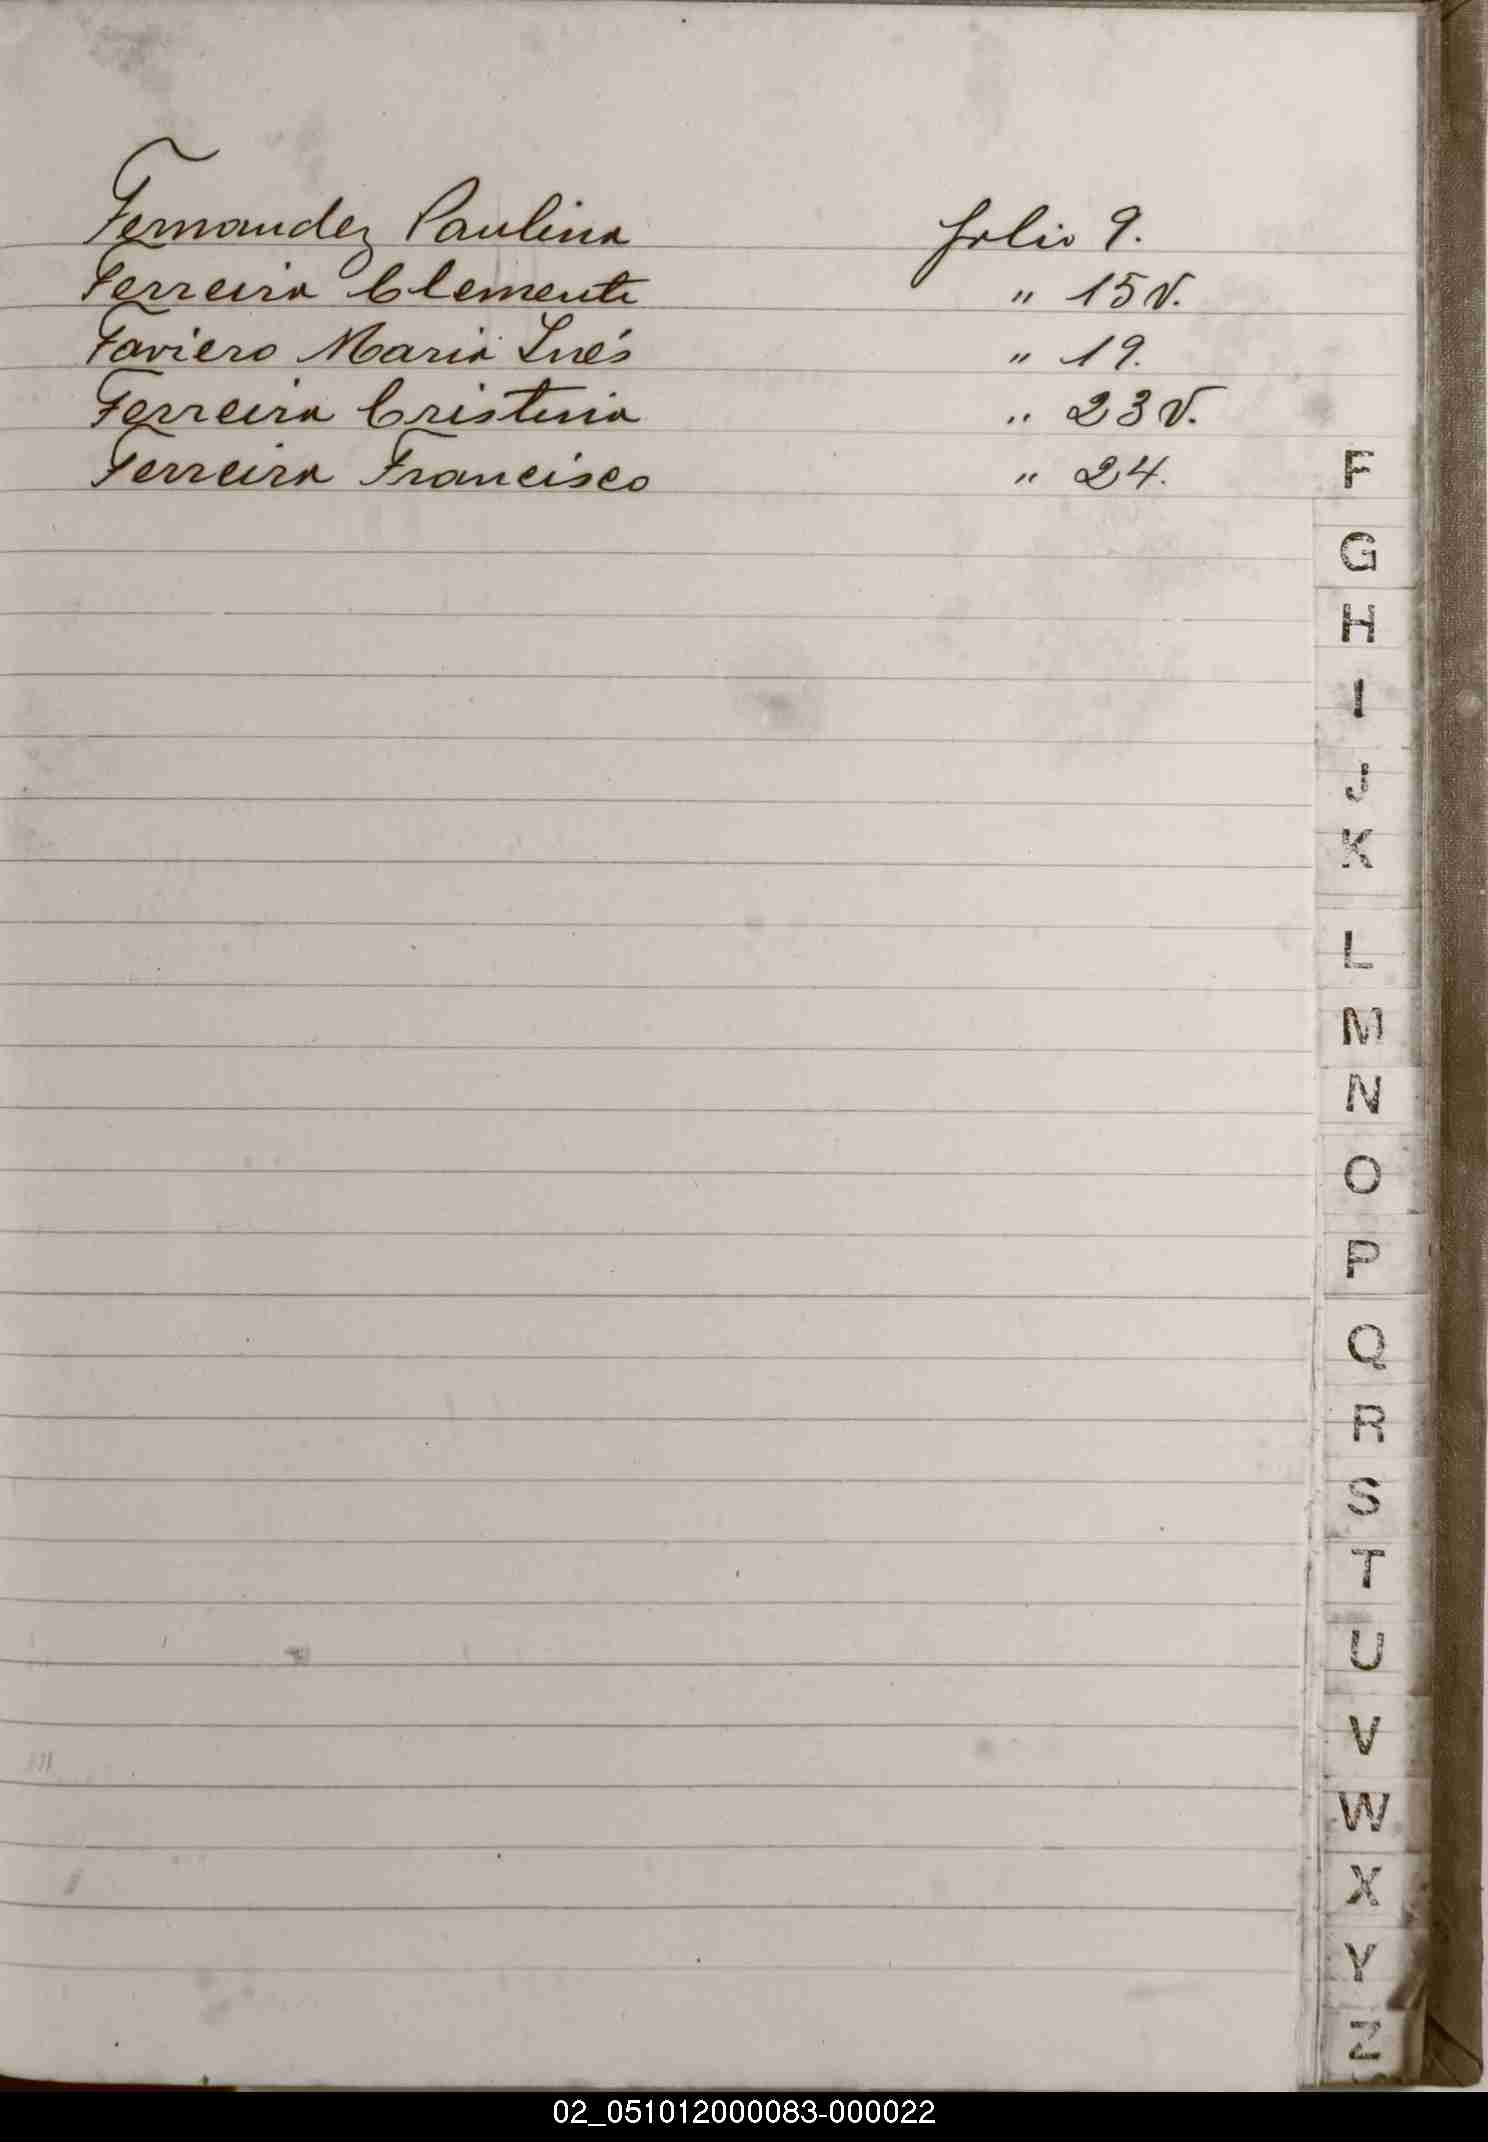 Fernandez Paulina folio 9.
Ferreira Clemente " 15 v.
Faviero Maria Inés " 19.
Ferreira Cristina " 23 v.
Ferreira Francisco " 24.
F
G
H
I
J
K
L
M
N
O
P
Q
R
S
T
U
V
W
X
Y
Z
02_051012000083-000022